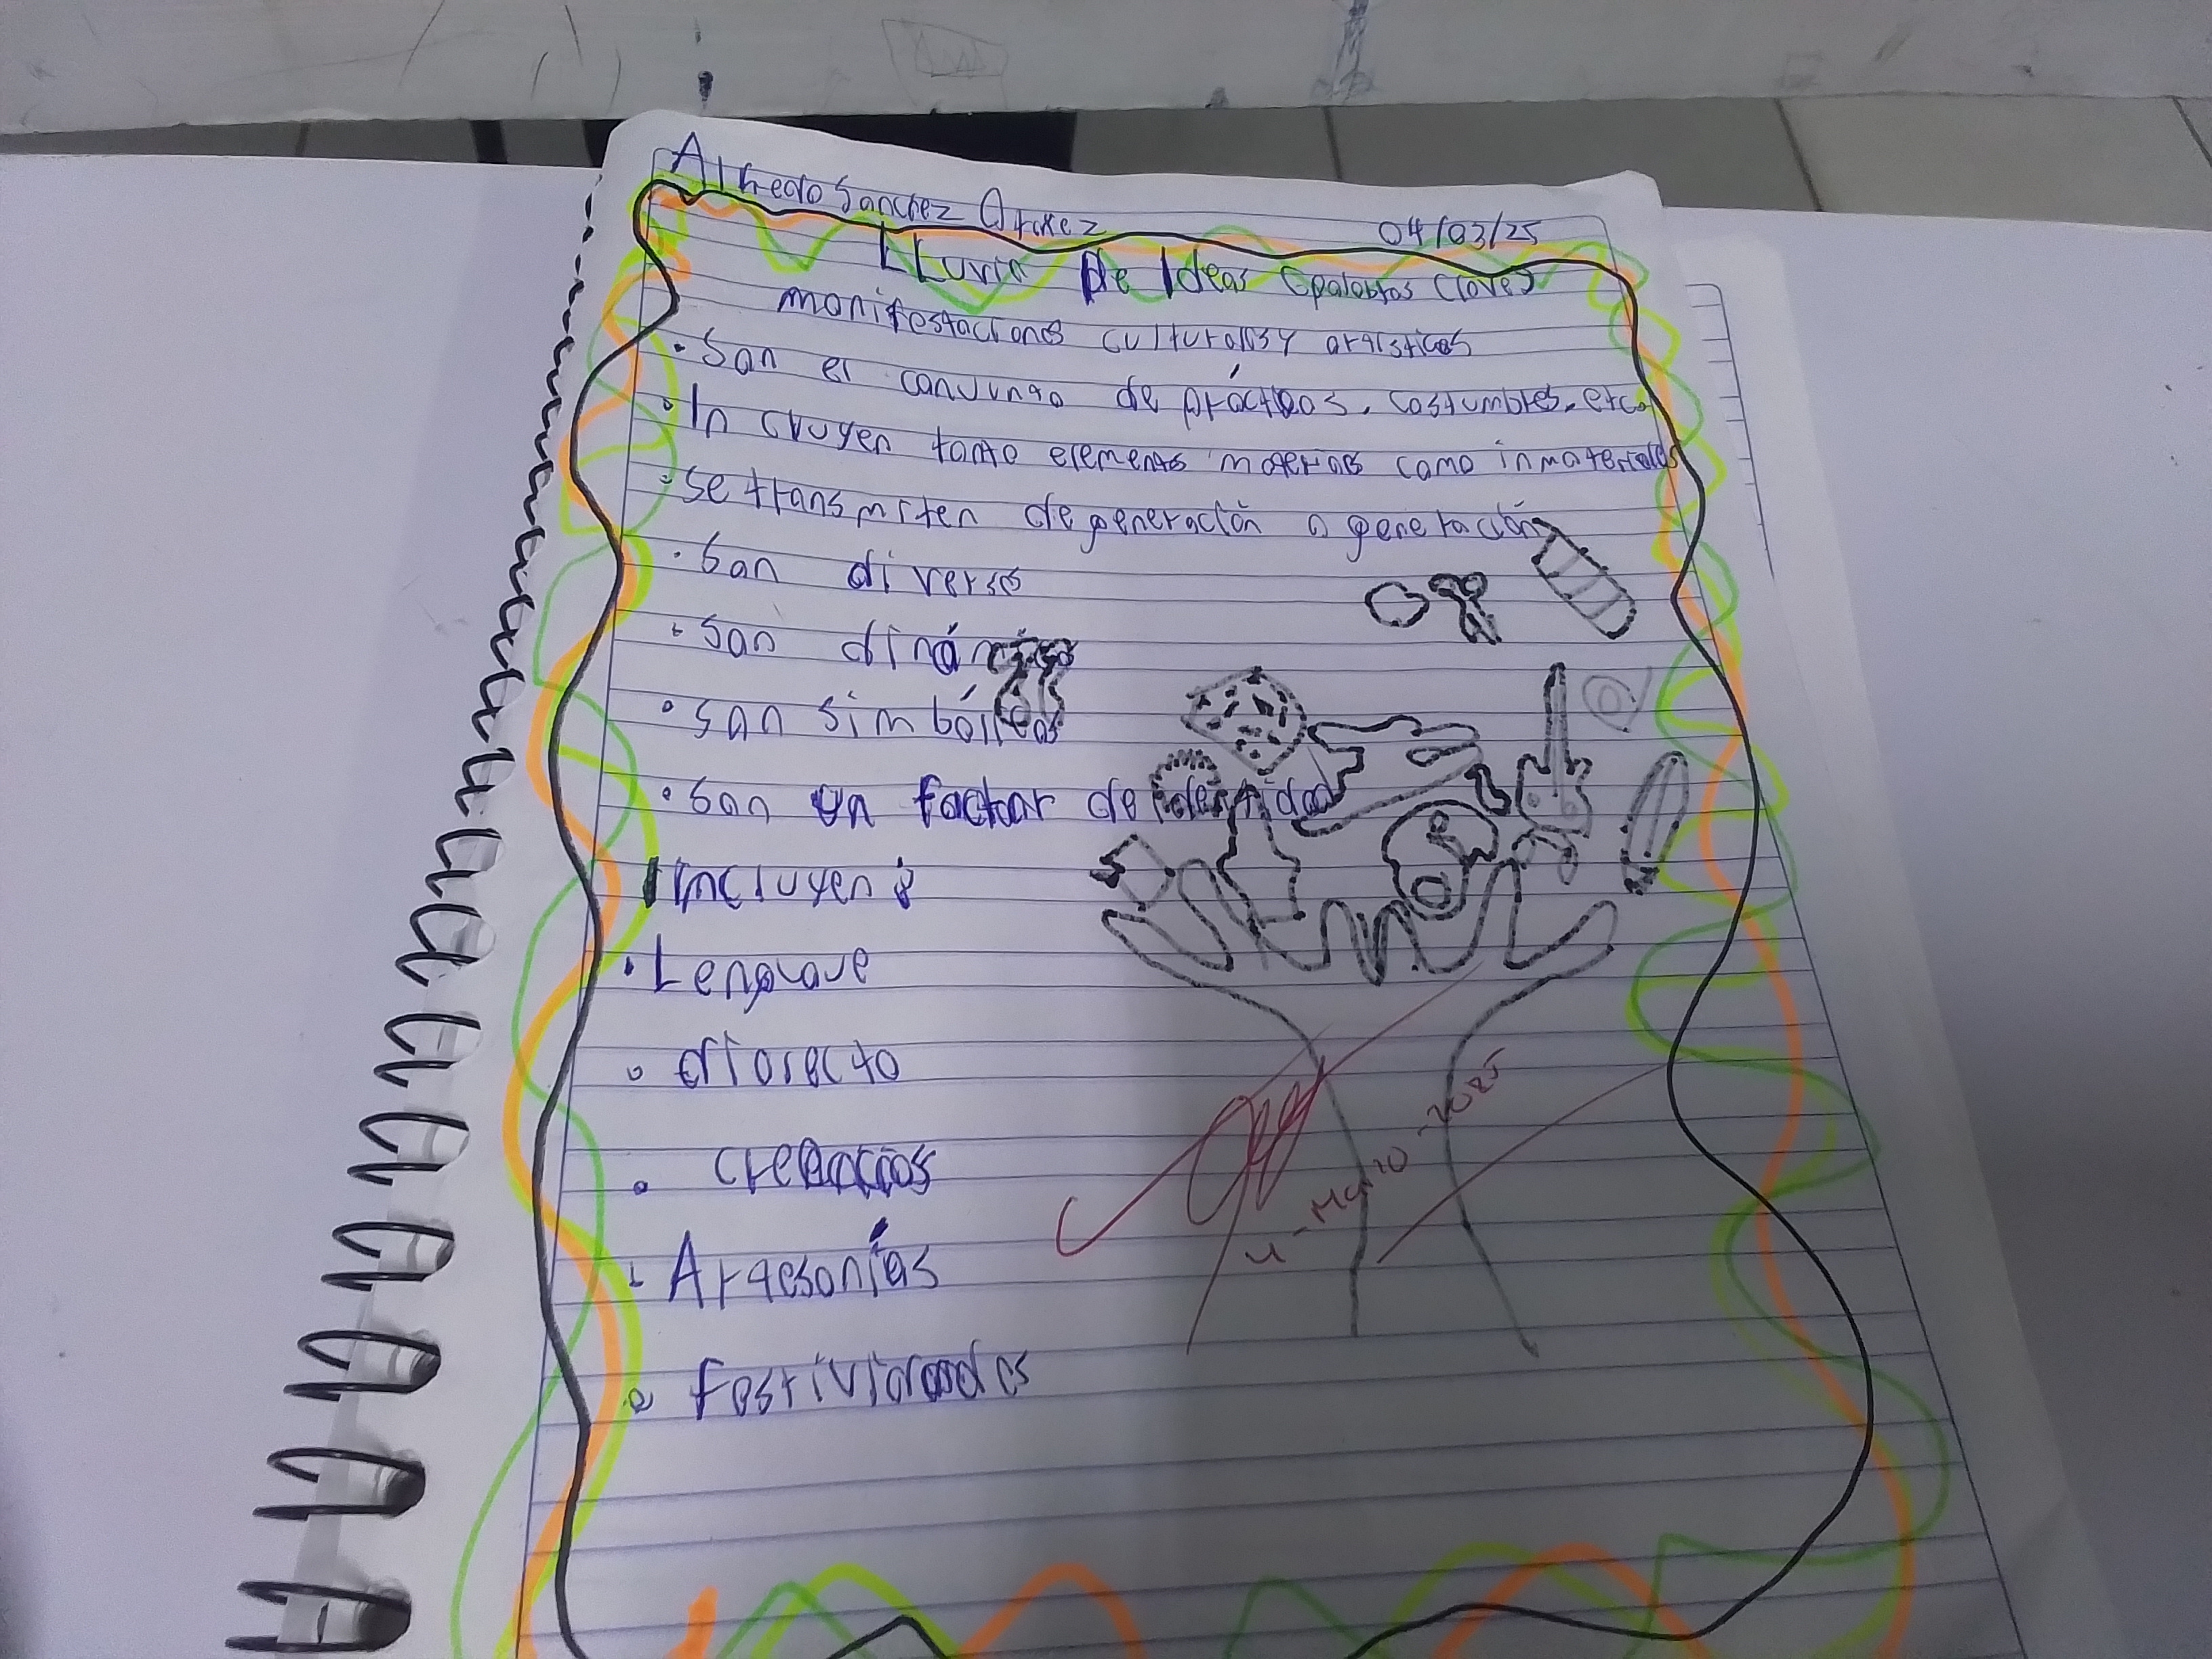 Alfredo Sanchez 04/03/25
LLuvia De Ideas (palabras clave)
manifestaciones culturales y artísticas
• San el conjunto de prácticas, costumbres, etc.
• Incluyen tanto elementos materiales como inmateriales
• Se transmiten de generación a generación
• San diversas
• San dinámicas
• San simbólicas
• San un factor de identidad
Incluyen:
• Lenguaje
• dialecto
• creencias
• Artesanías
• festividades
4-Marzo-2025